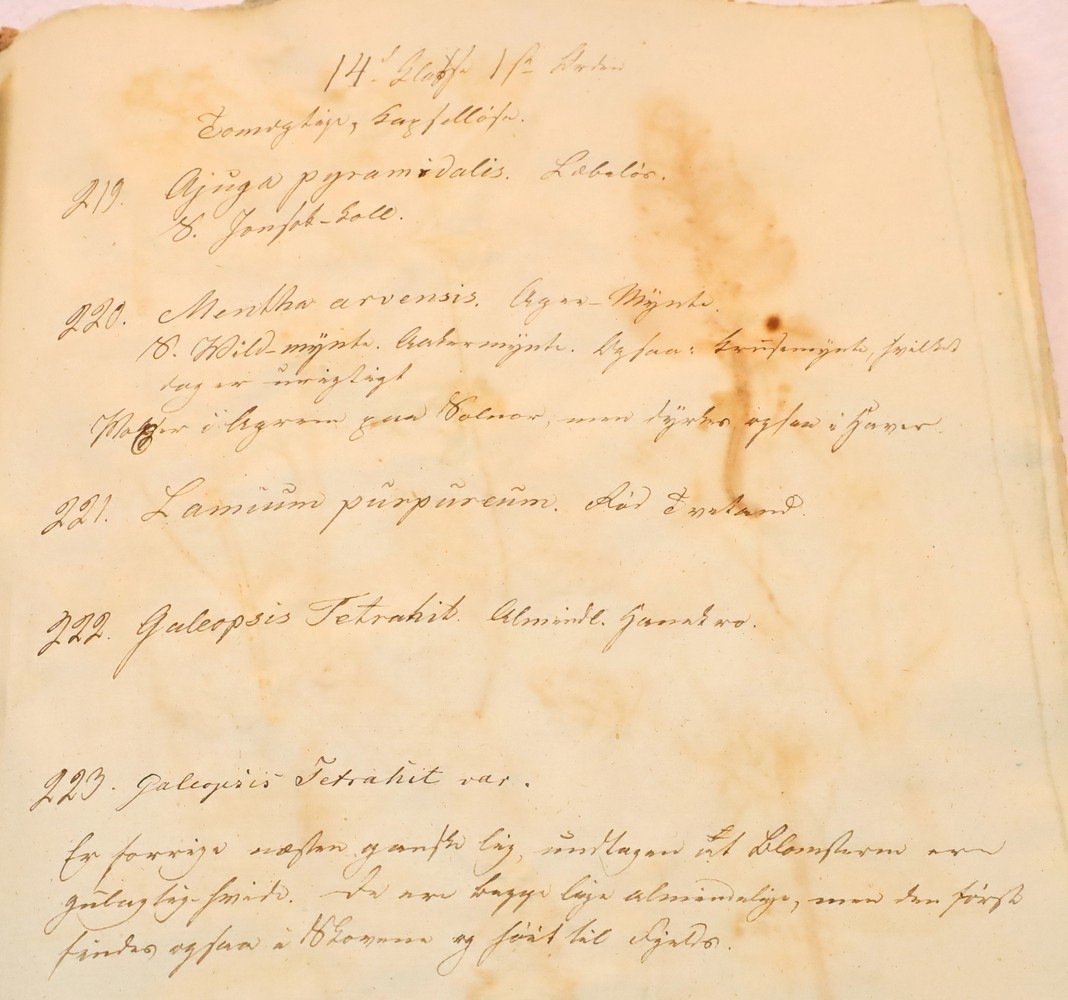 14d Classe 1ste Orden
Tomægtige, kapselløse.
219. Ajuga pyramidalis. Læbeløs.
S. Jonsok-koll.
220. Mentha arvensis. Ager-Mynte.
S. Wild-mynte. Aakermynte. Ogsaa: krusemynte, hvilket
dog er urigtigt
Voxer i Agrene paa Solnor, men dyrkes ogsaa i Haver.
221. Lamium purpureum. Rød Tvetand.
222. Galeopsis Tetrahit. Almindl. Hanekro.
223. Galeopsis Tetrahit var.
Er forrige næsten ganske lig, undtagen at Blomsterne ere
gulagtig-hvide. De ere begge lige almindelige, men den første
findes ogsaa i Skovene og høit til Fjelds.